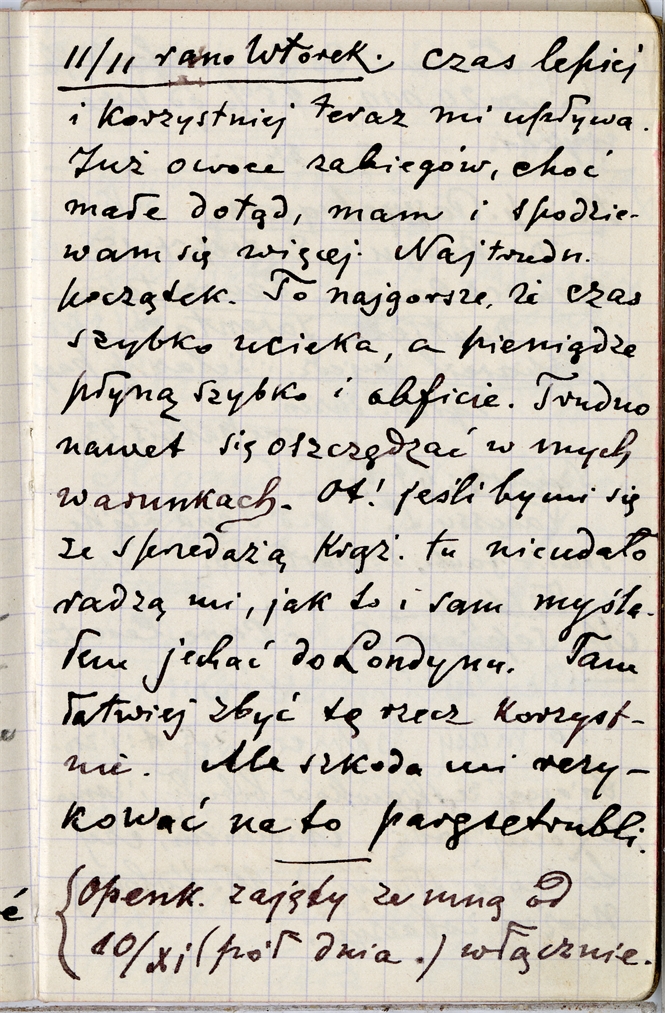 11/11 rano Wtorek. Czas lepiej
i korzystniej teraz mi upływa.
Już owoce zabiegów, choć
małe dotąd, mam i spodzie-
wam się więcej. Najtrudn.
początek. To najgorsze, że czas
szybko ucieka, a pieniądze
płyną szybko i obficie. Trudno
nawet się oszczędzać w mych
warunkach. Ot! jeśliby mi się
ze sprzedażą Książ. tu nieudało
radzą mi, jak to i sam myśla-
łem jechać do Londynu. Tam
łatwiej zbyć tę rzecz korzyst-
nie. Ale szkoda mi rezy-
kować na to paręset rubli.
Openk. zajęty ze mną od
10/XI (pół dnia.) włącznie.
é